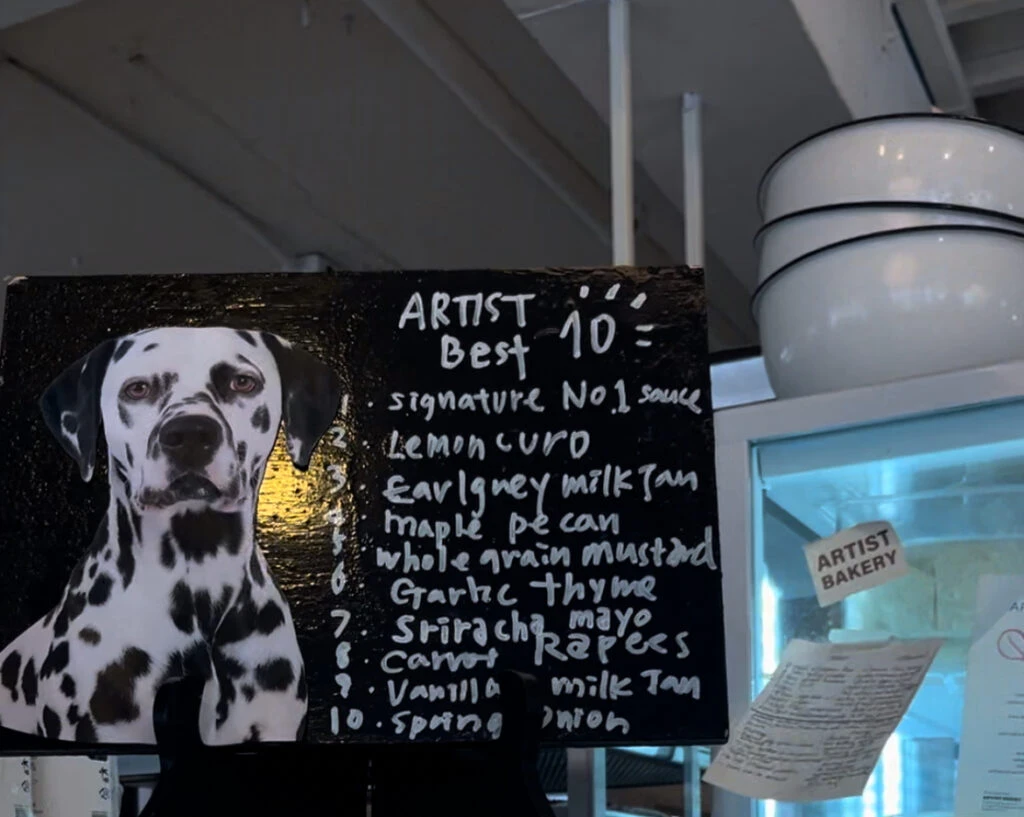 ARTIST
Best 10
1. signature No.1 sauce
2. Lemon curD
3. Earlgney milk Jan
4. maple pecan
5. whole grain mustard
6. Garlic thyme
7. Sriracha mayo
8. carrot Rapees
9. Vanilla milk Jan
10. spring onion
ARTIST
BAKERY